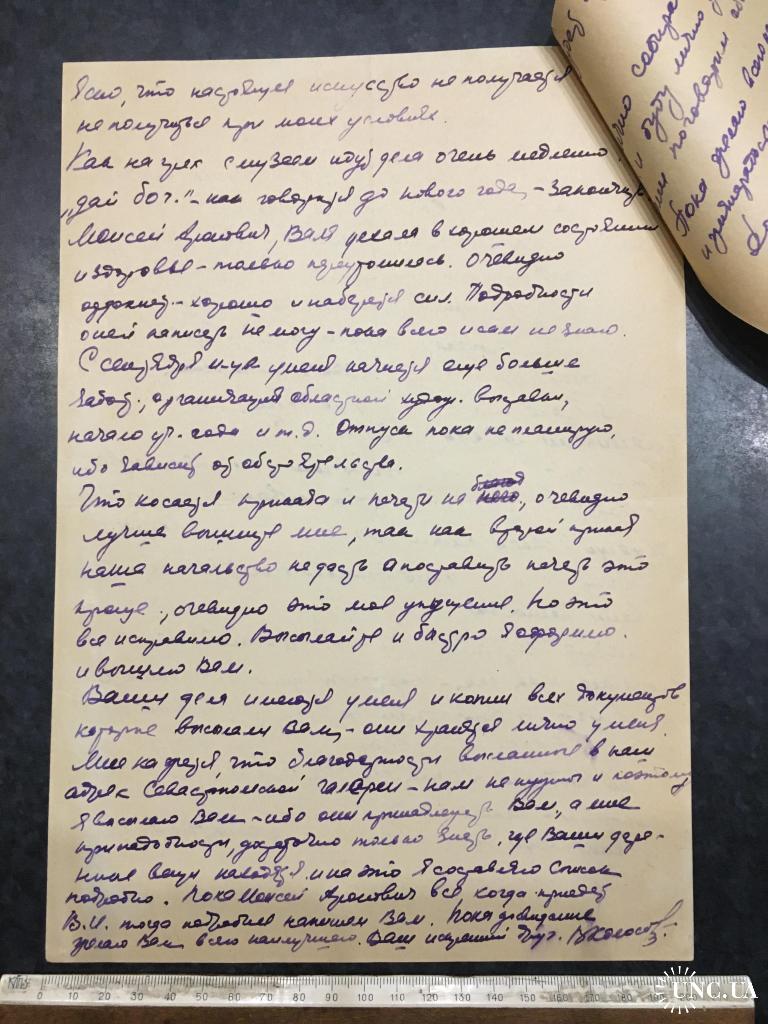 Ясно, что настоящее искусство не получается
не получится при моих условиях.
Как на грех с музеем идут дела очень медленно
„дай бог." – как говорится до нового года, – закончить
Моисей Аронович, Валя уехала в хорошем состоянии
и здоровье – только переутомилась. Очевидно
отдохнет – хорошо и наберется сил. Подробности
о ней написать не могу – пока всего и сам не знаю.
С сентября м-ца у меня начнется еще больше
забот, организация областной худож. выставки,
начало уч. года и т.д. Отпуск пока не планирую,
ибо зависит от обстоятельства.
Что касается и печати на, очевидно
лучше вышлите мне, так как второй
наше начальство не даст а поставить печать это
проще, очевидно это мое упущение. Но это
все исправимо. Высылайте и быстро я оформлю.
и вышлю Вам.
Ваши дела имеются у меня и копии всех документов
которые высылали Вам, – они хранятся лично у меня.
Мне кажется, что благодарности высланные в наш
адрес Севастопольской галереи – нам не нужны и поэтому
я высылаю Вам – ибо они принадлежат Вам, а мне
достаточно только знать, где Ваши даре-
ные вещи находятся и на это я составляю список
подробно. Пока Моисей Аронович все когда приедет
В.И. тогда подробнее напишем Вам. Пока до свидание
желаю Вам всего наилучшего. Ваш искренний друг.
лично
и буду лично
поговорим об
Пока желаю всего
UNC.UA
0 10 20 30 40 50 60 70 80 90 100 110 120 130 140 150 160 170 180 190